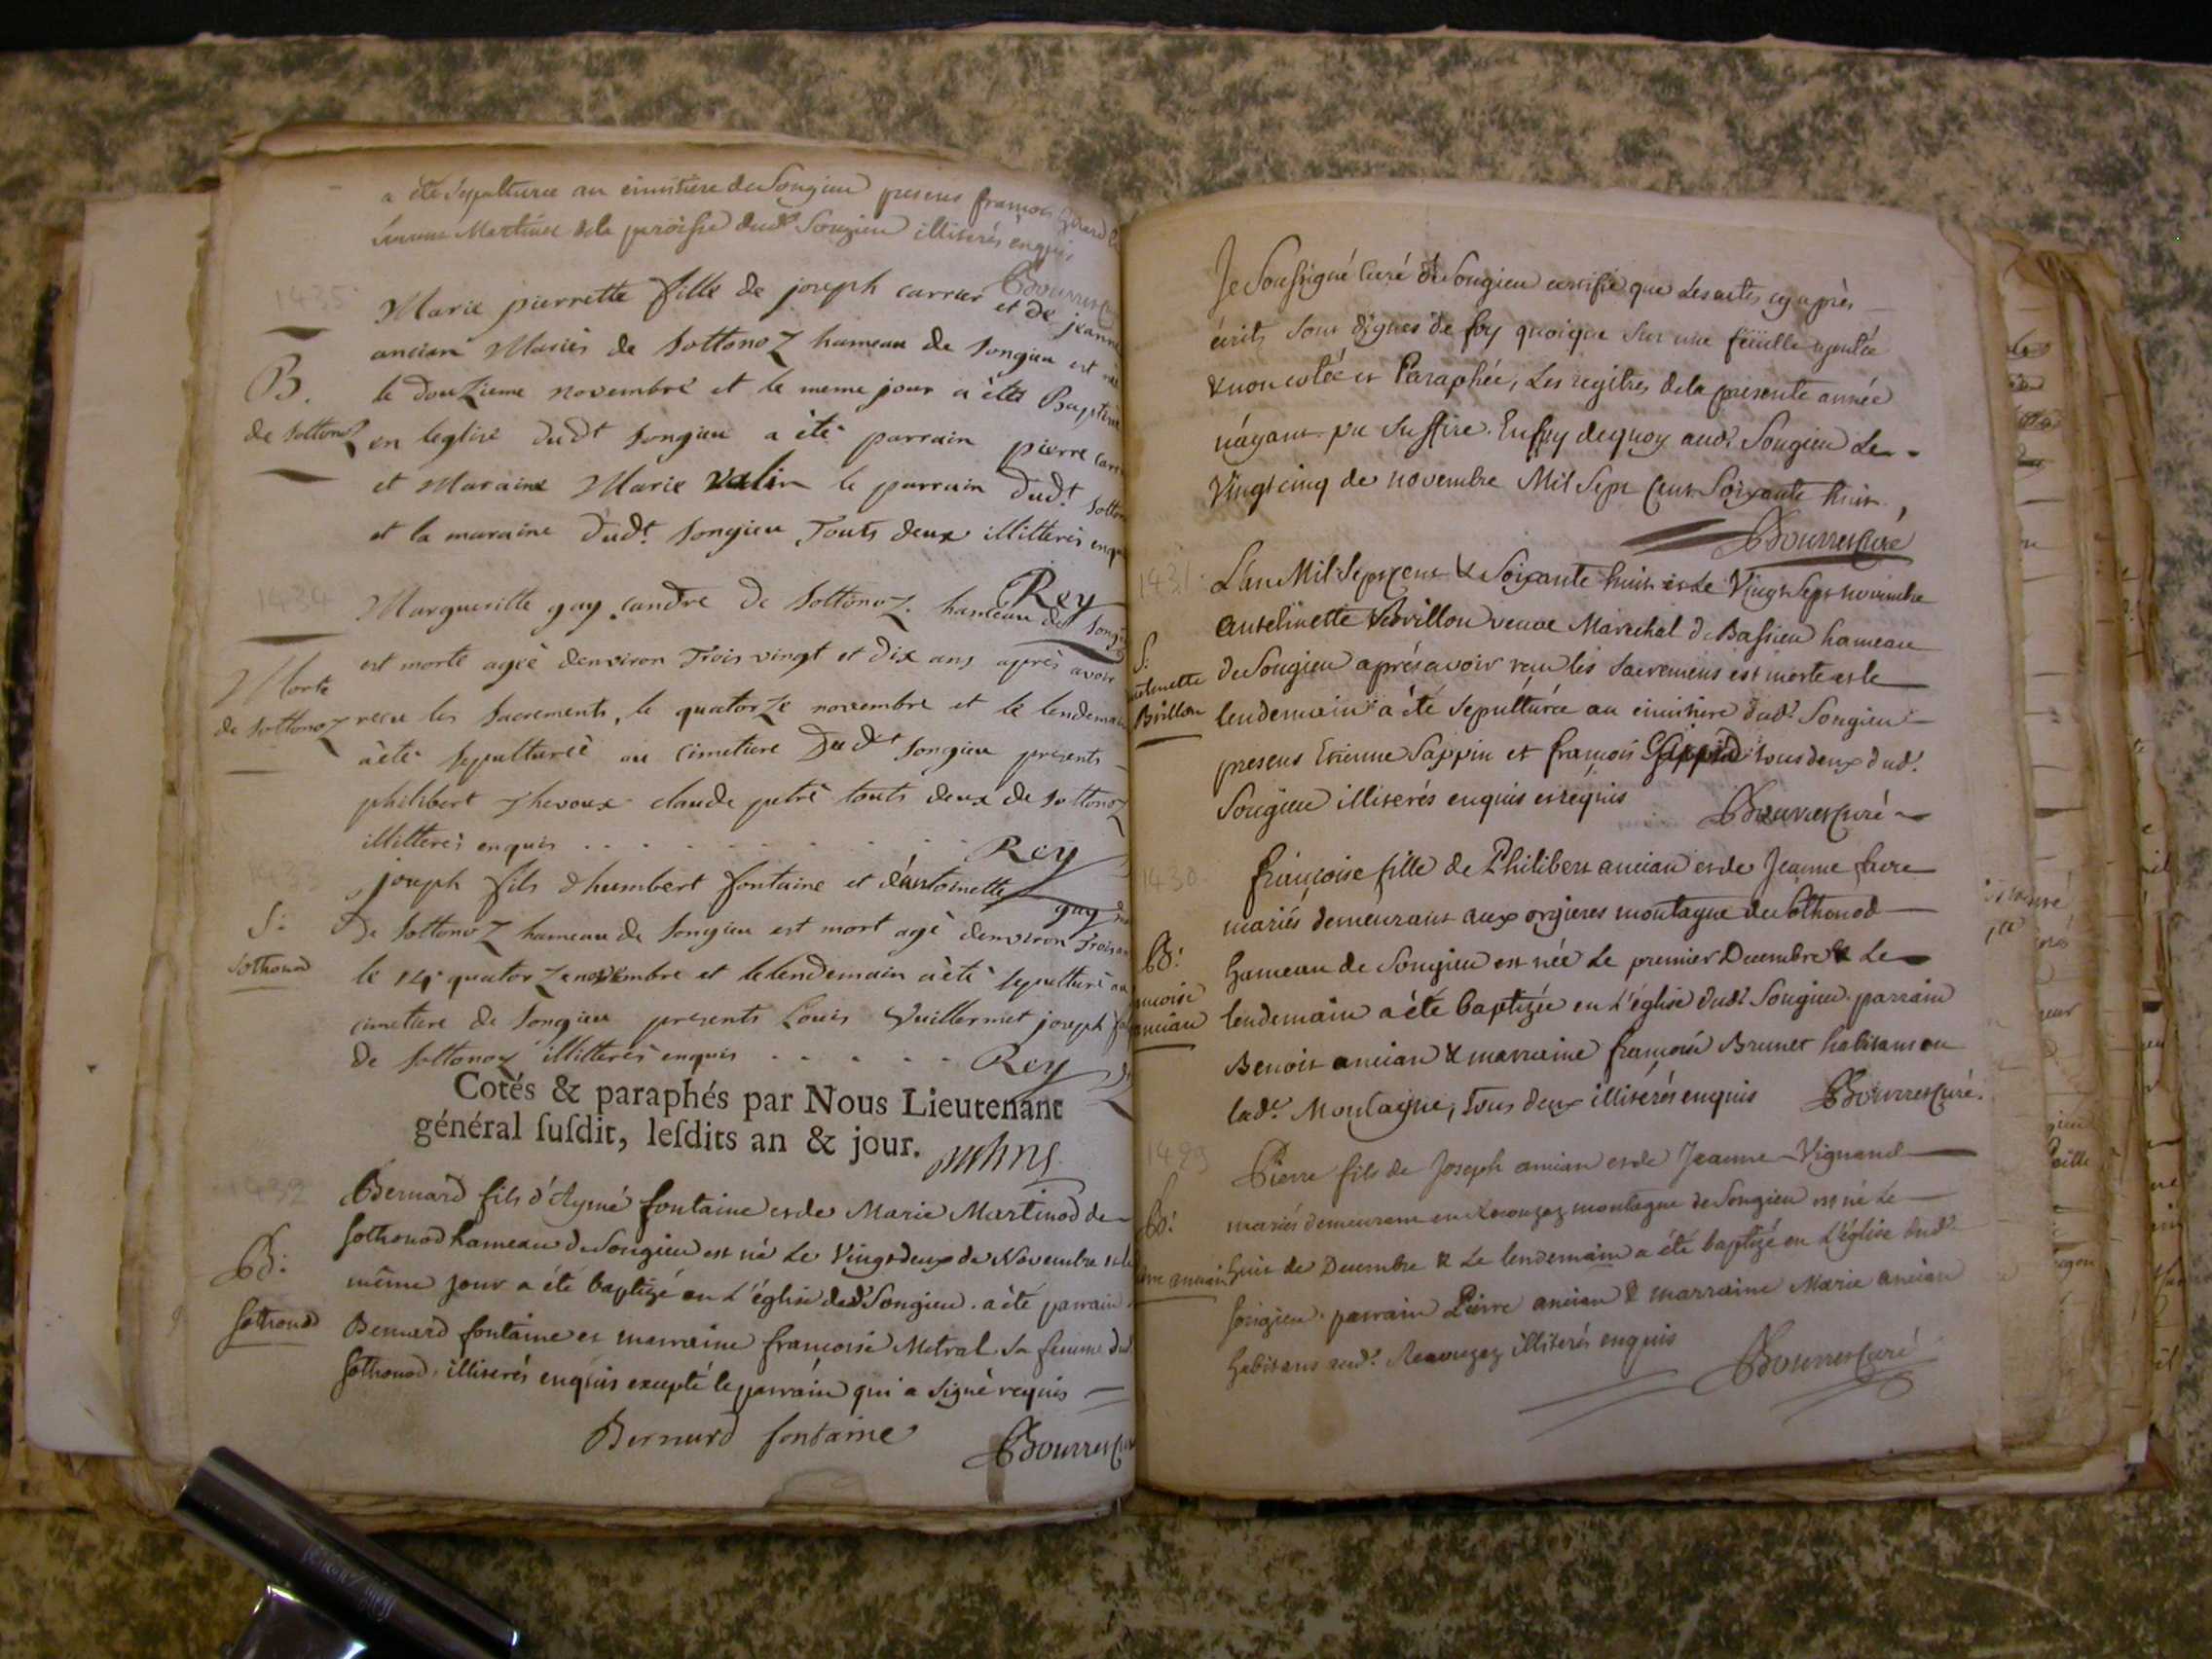 a été sepulturée au cimitiere de Songieu presens françois
Martinet de la paroisse dud.t Songieu illiterés enquis
1435
Bourres
Marie pierrette fille de joseph carrier et de jeanne
ancian Mariés de Sottonoz hameau de Songieu est née
B.
le douzieme novembre et le meme jour a étés Baptisée
de Sottonoz
en leglise dudt Songieu a été parrain pierre
et Maraine Marie valin le parrain dudt. Sottonoz
et la maraine dudt. Songieu Touts deux illitterés enquis
Rey
1434
Margueritte gay candre de Sottonoz hameau de Songieu
est morte agéé denviron Trois vingt et dix ans après avoir
Morte
de Sottonoz
recu les Sacrements, le quatorze novembre et le lendemain
àété sepulturéé au cimetiere Dudt Songieu présents
philibert Thevoux claude petré touts deux de Sottonoz
illitterés enquis . . . . . . . . . . Rey
1433
joseph fils dhumbert fontaine et d'antoinette gay
S:
De Sottonoz hameau de Songieu est mort agé denviron Trois ans
Sothonod
le 14 quatorze novembre et le lendemain àété sepulturé au
cimetiere de Songieu présents Louis Vuillermet joseph
de Sottonoz illitterés enquis . . . . . . Rey
Cotés & paraphés par Nous Lieutenant
général ſuſdit, leſdits an & jour.
1432
Bernard fils d'Aymé fontaine et de Marie Martinod de
Sothonod hameau de Songieu est né le Vingtdeux de Novembre et le
B:
même jour a été baptizé en L'église dud.t Songieu. a été parrain
Sothonod
Bernard fontaine et marraine françoise Metral sa femme dud.
Sothonod. illiterés enquis excepté le parrain qui a signé requis
Bernard fontaine Bourres Curé
Je Soussigné Curé de Songieu certifie que Les actes cy après
écrits sont dignes de foy quoique sur une feüille ajoutée
& non cotée et Paraphée, Les regitres de la presente année
n'áyant pu suffire. En foy dequoy aud.t Songieu Le
Vingtcinq de novembre Mil Sept Cent Soixante huit.,
Bourres Curé
1431
L'an Mil Sept cent & Soixante huit et Le Vingt Sept novembre
Antelmette Brillon veuve Marechal de Bassieu hameau
S:
Brillon
de Songieu aprés avoir reçu les Sacremens est morte et le
lendemain a été sepulturée au cimitiere dud.t Songieu
presens Etienne Sappin et françois tous deux dud.t
Songieu illiterés enquis et requis Bourres Curé
1430
françoise fille de Philibert ancian et de Jeanne favre
mariés demeurant aux orgieres montagne de Sothonod
B:
hameau de Songieu est née Le premier Decembre & Le
ancian
lendemain a été baptizée en L'église dud.t Songieu. parrain
Benoit ancian & marraine françoise Brunet habitans en
lad.e Montagne, tous deux illiterés enquis Bourres Curé.
1429
Pierre fils de Joseph ancian et de Jeanne Vignand
B:
mariés demeurans en montagne de Songieu est né Le
ancian
huit de Decembre & Le lendemain a été baptizé en L'église dud.t
Songieu. parrain Pierre ancian & marraine Marie ancian
habitans aud.t illiterés enquis
Bourres Curé